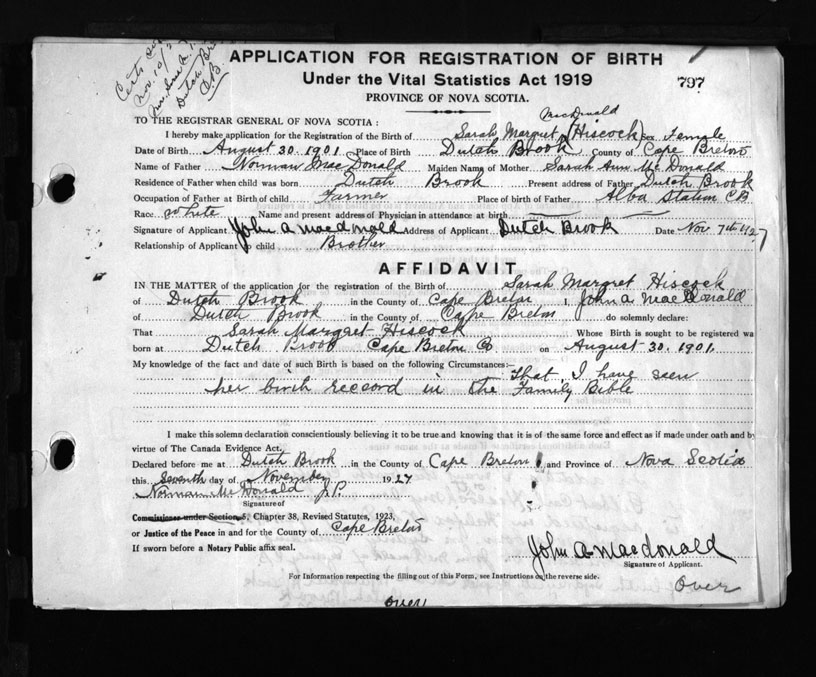 Nov. 10/2
Dutch Bro
C.B
APPLICATION FOR REGISTRATION OF BIRTH
Under the Vital Statistics Act 1919
797
PROVINCE OF NOVA SCOTIA.
TO THE REGISTRAR GENERAL OF NOVA SCOTIA :
MacDonald
I hereby make application for the Registration of the Birth of Sarah Margret (Hiscock) Sex Female
Date of Birth August 30. 1901 Place of Birth Dutch Brook County of Cape Breton
Name of Father Norman MacDonald Maiden Name of Mother Sarah Ann McDonald
Residence of Father when child was born Dutch Brook Present address of Father Dutch Brook
Occupation of Father at Birth of child Farmer Place of birth of Father Alba Station C B
Race White Name and present address of Physician in attendance at birth
Signature of Applicant John A macdonald Address of Applicant Dutch Brook Date Nov 7th 1927
Relationship of Applicant child Brother
AFFIDAVIT
IN THE MATTER of the application for the registration of the Birth of Sarah Margret Hiscock
of Dutch Brook in the County of Cape Breton I, John A MacDonald
of Dutch Brook in the County of Cape Breton do solemnly declare:
That Sarah Margaret Hiscock Whose Birth is sought to be registered wa
born at Dutch Brook Cape Breton Co on August 30. 1901.
My knowledge of the fact and date of such Birth is based on the following Circumstances:— That I have seen
her birth reccord in the Family Bible
I make this solemn declaration conscientiously believing it to be true and knowing that it is of the same force and effect as if made under oath and by
virtue of The Canada Evidence Act.
Declared before me at Dutch Brook in the County of Cape Breton and Province of Nova Scotia
this Seventh day of November 1927
Norman McDonald J.P.
Signature of
Commissioner under Section 5, Chapter 38, Revised Statutes, 1923,
or Justice of the Peace in and for the County of Cape Breton
If sworn before a Notary Public affix seal.
John A macdonald
Signature of Applicant.
For Information respecting the filling out of this Form, see Instructions on the reverse side.
Over
over